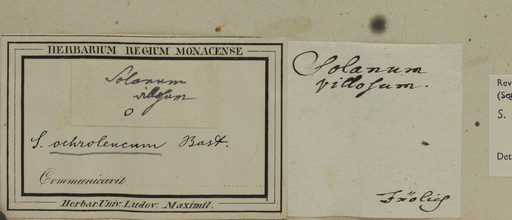 HERBARIUM REGIUM MONACENSE
Solanum
villosum
O
S. ochroleucum Bast.
Communicavit
Herbar. Univ. Ludov. Maximil.
Solanum
villosum.
*
Frölich
Rev
S.
Det